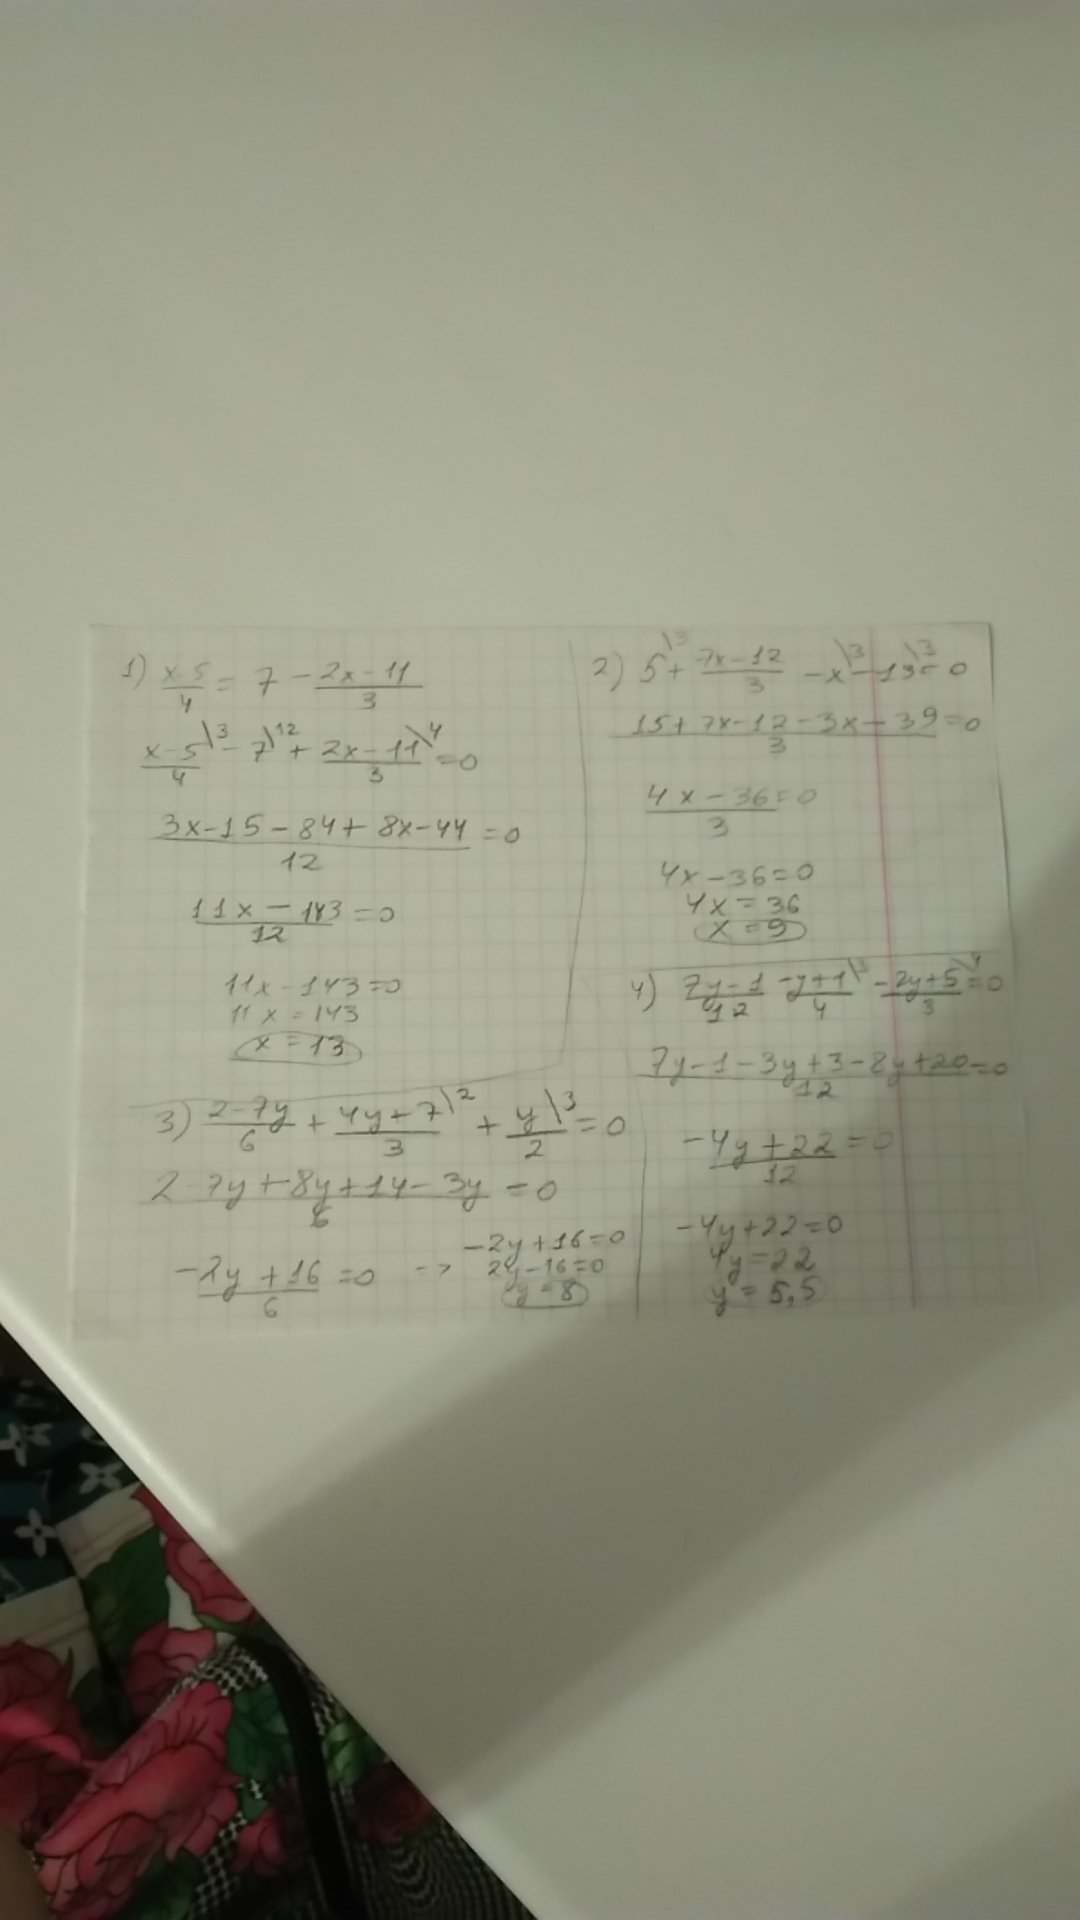 1) (x-5)/4 = 7 - (2x-11)/3
(x-5)/4\3 - 7\12 + (2x-11)/3\4 = 0
(3x-15-84+8x-44)/12 = 0
(11x-143)/12 = 0
11x-143=0
11x=143
x=13
2) 5\3 + (7x-12)/3 - x\3 - 13\3 = 0
(15+7x-12-3x-39)/3 = 0
(4x-36)/3 = 0
4x-36=0
4x=36
x=9
3) (2-7y)/6 + (4y+7)/3\2 + y/2\3 = 0
(2-7y+8y+14-3y)/6 = 0
(-2y+16)/6 = 0 ->
-2y+16=0
2y-16=0
y=8
4) (7y-1)/12 - (y+1)/4\3 - (2y+5)/3\4 = 0
(7y-1-3y+3-8y+20)/12 = 0
(-4y+22)/12 = 0
-4y+22=0
4y=22
y=5,5